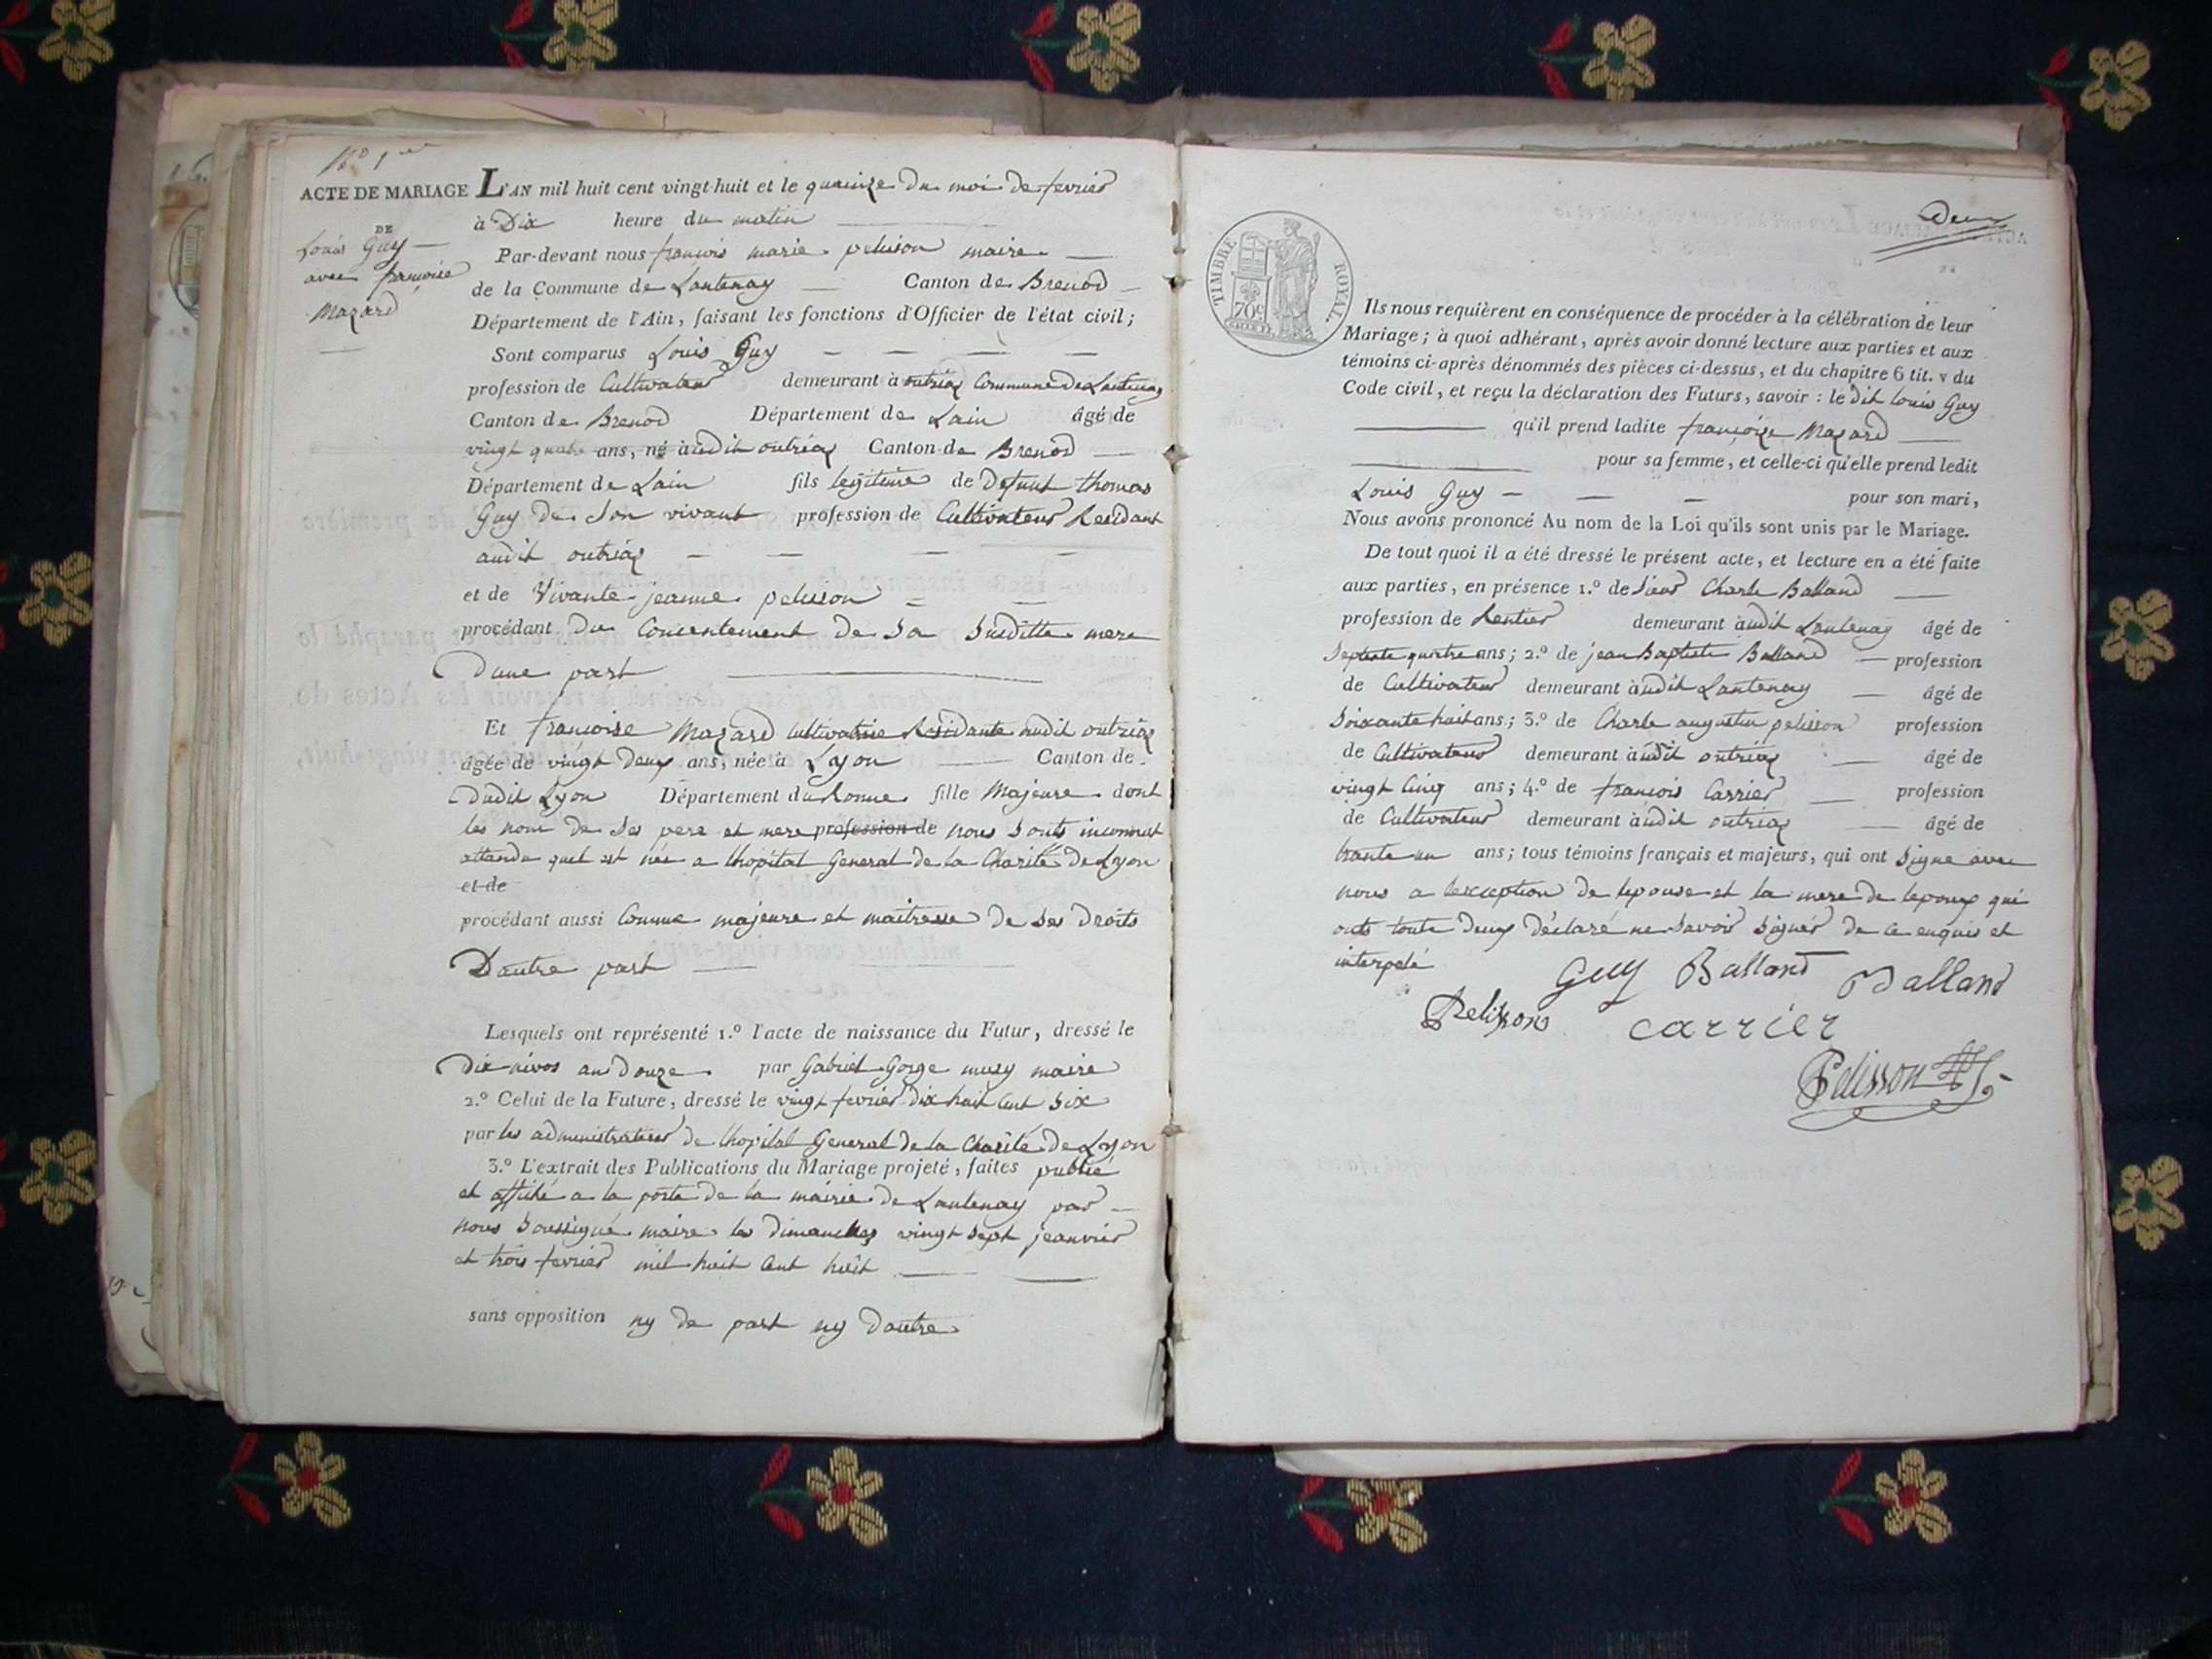 N.o 1er
ACTE DE MARIAGE
DE
Louis Guy
avec françoise
Mazard
L'AN mil huit cent vingt-huit et le quainze du moi de fevrier
à Dix heure du matin
Par-devant nous françois marie pelisson maire
de la Commune de Lantenay Canton de Brenod
Département de l'Ain, faisant les fonctions d'Officier de l'état civil;
Sont comparus Louis Guy
profession de Cultivateur demeurant à outriaz Commune De Lantenay
Canton de Brenod Département de Lain âgé de
vingt quatre ans, né audit outriaz Canton de Brenod
Département de Lain fils legitime de Defunt thomas
Guy de Son vivant profession de Cultivateur Residant
audit outriaz
et de Vivante jeanne pelisson
procédant du Consentement de Sa Suditte mere
Dune part
Et francoise Mazard Cultivatrice Residante audit outriaz
âgée de vingt Deux ans, née à Lyon Canton de
Dudit Lyon Département du Ronne fille Majeure dont
les nom de Ses pere et mere profession de nous Sonts inconnut
attandu quel est née a lhopital General de la Charité De Lyon
et de
procédant aussi Comme majeure et maitresse de Ses Droits
Dautre part
Lesquels ont représenté 1.º l'acte de naissance du Futur, dressé le
Dix nivos an Douze par Gabriel Gorge musy maire
2.º Celui de la Future, dressé le vingt fevrier dix huit Cent Six
par les administrateur de lhopital General de la Charité De Lyon
3.º L'extrait des Publications du Mariage projeté, faites publié
et affiché a la porte de la mairie de Lantenay par
nous Soussigné maire les Dimanches vingt Sept jeanvier
et trois fevrier mil huit Cent huit
sans opposition ny de part ny dautre
Deux
TIMBRE ROYAL
70c
Ils nous requièrent en conséquence de procéder à la célébration de leur
Mariage; à quoi adhérant, après avoir donné lecture aux parties et aux
témoins ci-après dénommés des pièces ci-dessus, et du chapitre 6 tit. v du
Code civil, et reçu la déclaration des Futurs, savoir : le dit Louis Guy
qu'il prend ladite françoize Mazard
pour sa femme, et celle-ci qu'elle prend ledit
Louis Guy pour son mari,
Nous avons prononcé Au nom de la Loi qu'ils sont unis par le Mariage.
De tout quoi il a été dressé le présent acte, et lecture en a été faite
aux parties, en présence 1.º de Sieur Charle Balland
profession de Rentier demeurant audit Lantenay âgé de
Septente quatre ans; 2.º de jean Baptiste Balland profession
de Cultivateur demeurant audit Lantenay âgé de
Soixante huit ans; 3.º de Charle augustin pelisson profession
de Cultivateur demeurant audit outriaz âgé de
vingt Cinq ans; 4.º de francois Carrier profession
de Cultivateur demeurant audit outriaz âgé de
trante un ans; tous témoins français et majeurs, qui ont Signe avec
nous a lexception de lepouse et la mere de lepoux qui
onts toute deux déclaré ne Savoir Signer de ce enquis et
interpelé
Guy Balland Balland
Pelisson carrier
Pelisson